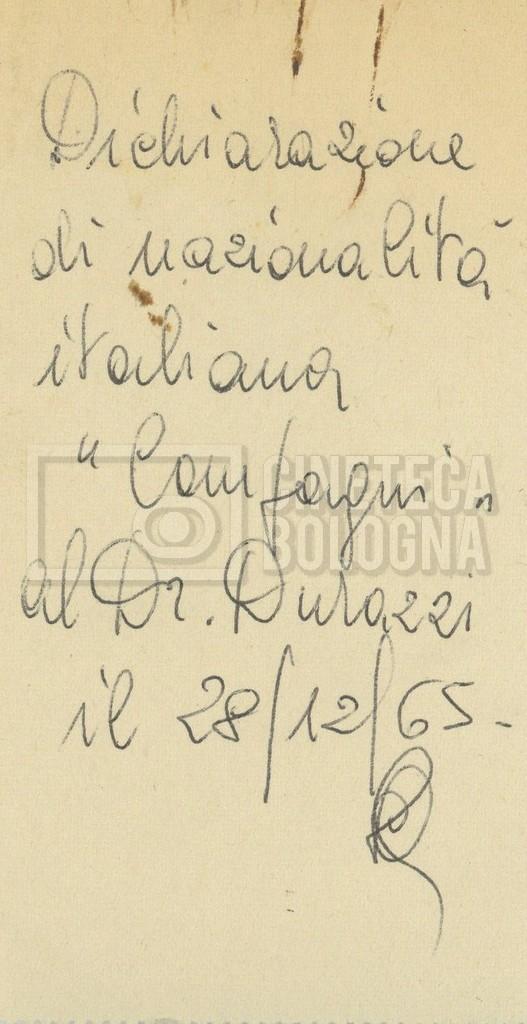 Dichiarazione
di nazionalità
italiana
"Compagni"
CINETECA
BOLOGNA
al Dr. Durazzi
il 28/12/65-